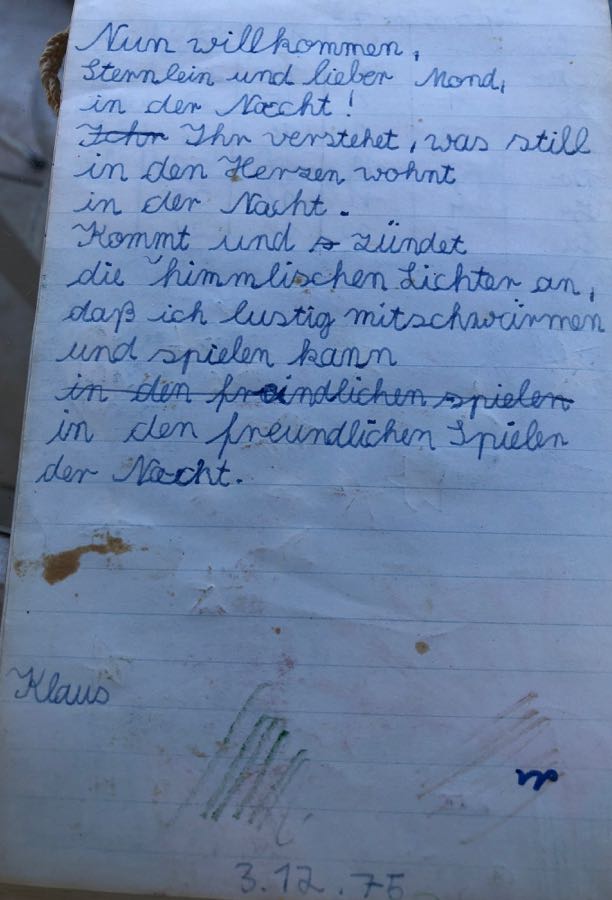 Nun willkommen,
Sternlein und lieber Mond,
in der Nacht!
Ichr Ihr verstehet, was still
in den Herzen wohnt
in der Nacht.
Kommt und s zündet
die himmlischen Lichter an,
daß ich lustig mitschwärmen
und spielen kann
in den freindlichen spielen
in den freundlichen Spielen
der Nacht.
Klaus
3.12.75